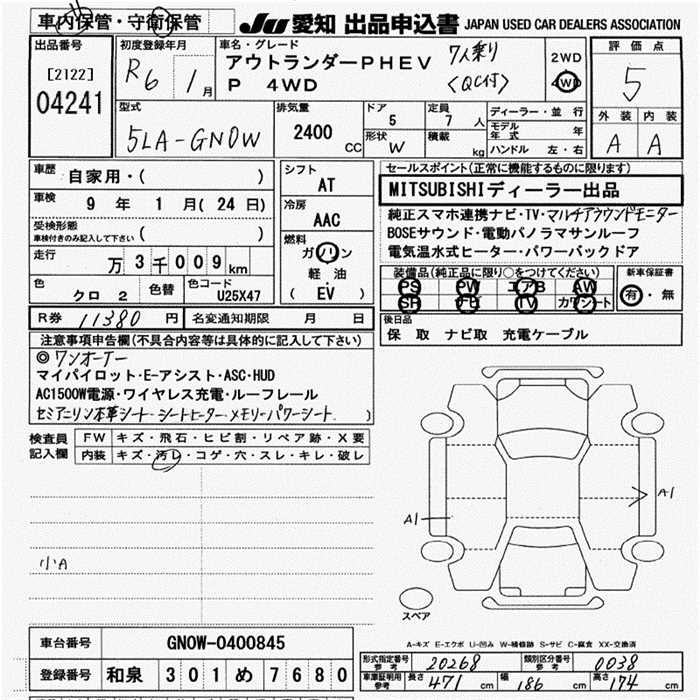 車内保管・守衛保管
JU 愛知 出品申込書 JAPAN USED CAR DEALERS ASSOCIATION
出品番号
[2122]
04241
初度登録年月
R6 1月
車名・グレード
アウトランダーPHEV 7人乗り
P 4WD 〈QC付〉
2WD
4WD
評価点
5
外装 内装
A A
型式
5LA-GN0W
排気量
2400 CC
ドア
5
定員
7 人
形状
W
積載
kg
ディーラー・並行
モデル年式 年
ハンドル 左・右
車歴
自家用・( )
車検
9 年 1 月(24 日)
受検形態
車検付きのみ記入して下さい ( )
走行
万 3 千 009 km
色
クロ 2
色替
色コード
U25X47
シフト
AT
冷房
AAC
燃料
ガソリン
軽油
( EV )
セールスポイント(正常に機能するものに限り)
MITSUBISHIディーラー出品
純正スマホ連携ナビ・TV・マルチアラウンドモニター
BOSEサウンド・電動パノラマサンルーフ
電気温水式ヒーター・パワーバックドア
装備品(純正品に限り○をつけてください)
PS PW エアB AW
SR ナビ TV カワシート
新車保証書
有・無
R券 11380 円 名変通知期限 月 日
後日品
保 取 ナビ取 充電ケーブル
注意事項申告欄(不具合内容等は具体的に記入して下さい)
◎ワンオーナー
マイパイロット・E-アシスト・ASC・HUD
AC1500W電源・ワイヤレス充電・ルーフレール
セミアニリン本革シート・シートヒーター・メモリーパワーシート
検査員
記入欄
FW キズ・飛石・ヒビ割・リペア跡・X要
内装 キズ・汚レ・コゲ・穴・スレ・キレ・破レ
小A
A1
A1
スペア
A-キズ E-エクボ U-凹み W-補修跡 S-サビ C-腐食 XX-交換済
車台番号 GN0W-0400845
登録番号 和泉 301 め 7680
形式指定番号 参考 20268 類別区分番号 参考 0038
車庫証明用 参考 長さ 471 cm 幅 186 cm 高さ 174 cm